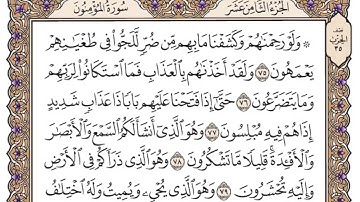 الجزء الثامن عشر سورة المؤمنون
۞ وَلَوْ رَحِمْنَٰهُمْ وَكَشَفْنَا مَا بِهِم مِّن ضُرٍّ لَّلَجُّوا۟ فِى طُغْيَٰنِهِمْ
يَعْمَهُونَ ٧٥ وَلَقَدْ أَخَذْنَٰهُم بِٱلْعَذَابِ فَمَا ٱسْتَكَانُوا۟ لِرَبِّهِمْ
وَمَا يَتَضَرَّعُونَ ٧٦ حَتَّىٰٓ إِذَا فَتَحْنَا عَلَيْهِم بَابًا ذَا عَذَابٍ شَدِيدٍ
إِذَا هُمْ فِيهِ مُبْلِسُونَ ٧٧ وَهُوَ ٱلَّذِىٓ أَنشَأَ لَكُمُ ٱلسَّمْعَ وَٱلْأَبْصَٰرَ
وَٱلْأَفْـِٔدَةَ ۚ قَلِيلًا مَّا تَشْكُرُونَ ٧٨ وَهُوَ ٱلَّذِى ذَرَأَكُمْ فِى ٱلْأَرْضِ
وَإِلَيْهِ تُحْشَرُونَ ٧٩ وَهُوَ ٱلَّذِى يُحْىِۦ وَيُمِيتُ وَلَهُ ٱخْتِلَٰفُ